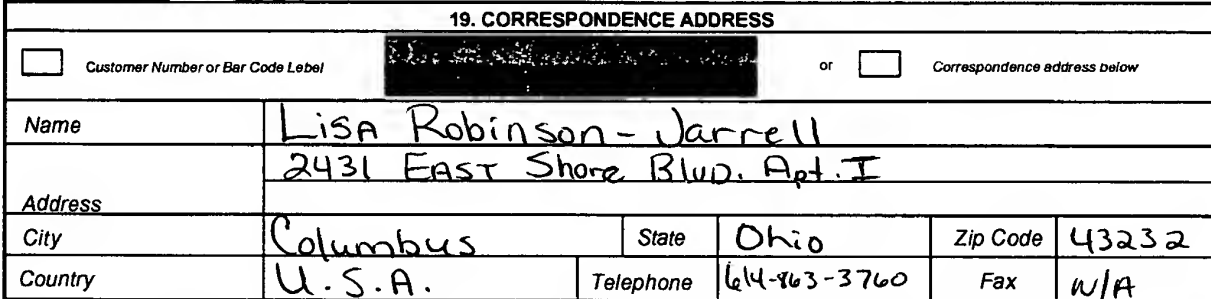 19. CORRESPONDENCE ADDRESS
Customer Number or Bar Code Lebel or Correspondence address below
Name Lisa Robinson-Jarrell
2431 EAST Shore Blvd. Apt. I
Address
City Columbus State Ohio Zip Code 43232
Country U.S.A. Telephone 614-863-3760 Fax N/A